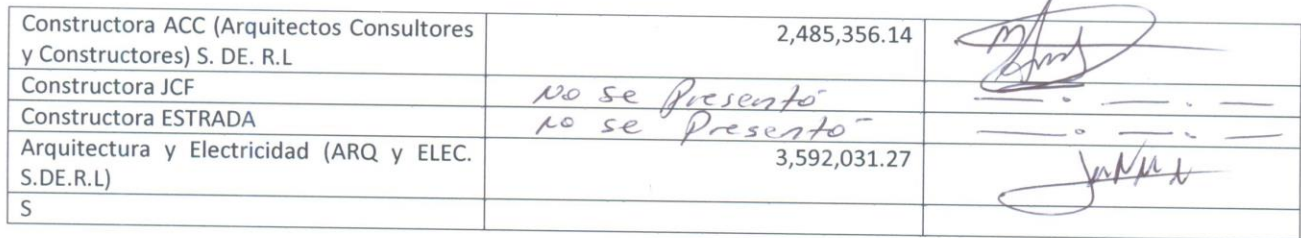 Constructora ACC (Arquitectos Consultores
y Constructores) S. DE. R.L
2,485,356.14
Constructora JCF
No se Presentó
Constructora ESTRADA
No se Presentó
Arquitectura y Electricidad (ARQ y ELEC.
S.DE.R.L)
3,592,031.27
S